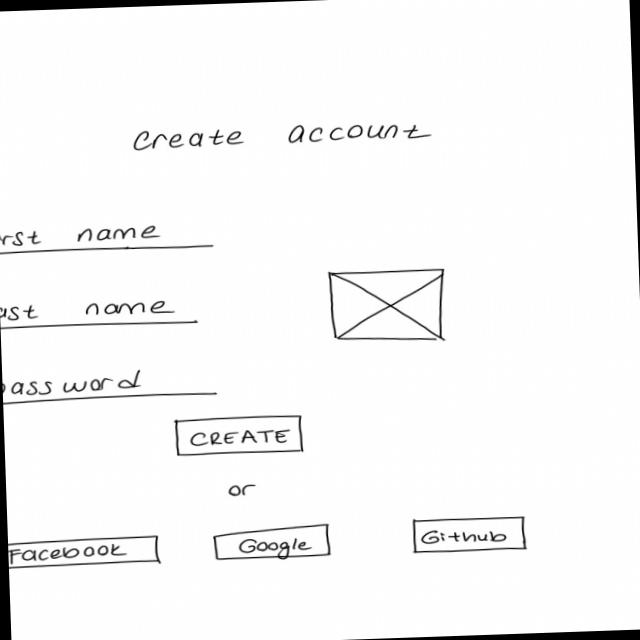 Create account
rst name
ast name
password
CREATE
or
Facebook
Google
Github